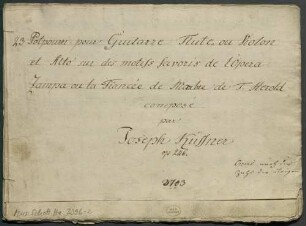 23 Potpouri pour Guitarre Flute ou Violon
et Alto sur des motifs favoris de l'Opera
Zampa ou la Fiancée de Marbre de F. Herold
composé
par
Joseph Küffner
op. 246.
3703